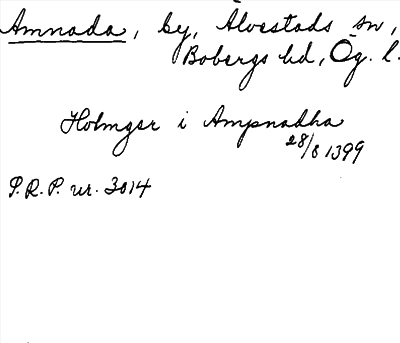 Amnada, by, Älvestads sn,
Bobergs hd, Ög. l.
Holmger i Ampnadha
28/8 1399
P.R.P. nr. 3014